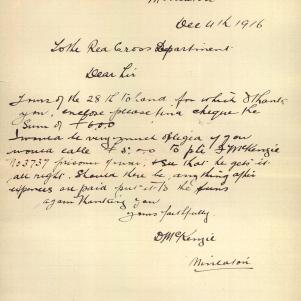 Dec 4th 1916
To the Red Cross Department
Dear Sir
Yours of the 28th to hand for which I thank
you, enclose please find cheque the
Sum of £6.0.0
I would be very much obliged if you
would cable £5.0.0 to pte D McKenzie
No 3737 prisoner of war, & see that he gets it
all right. Should there be anything after
expences are paid put it to the funs
again thanking you
yours faithfully
D McKenzie